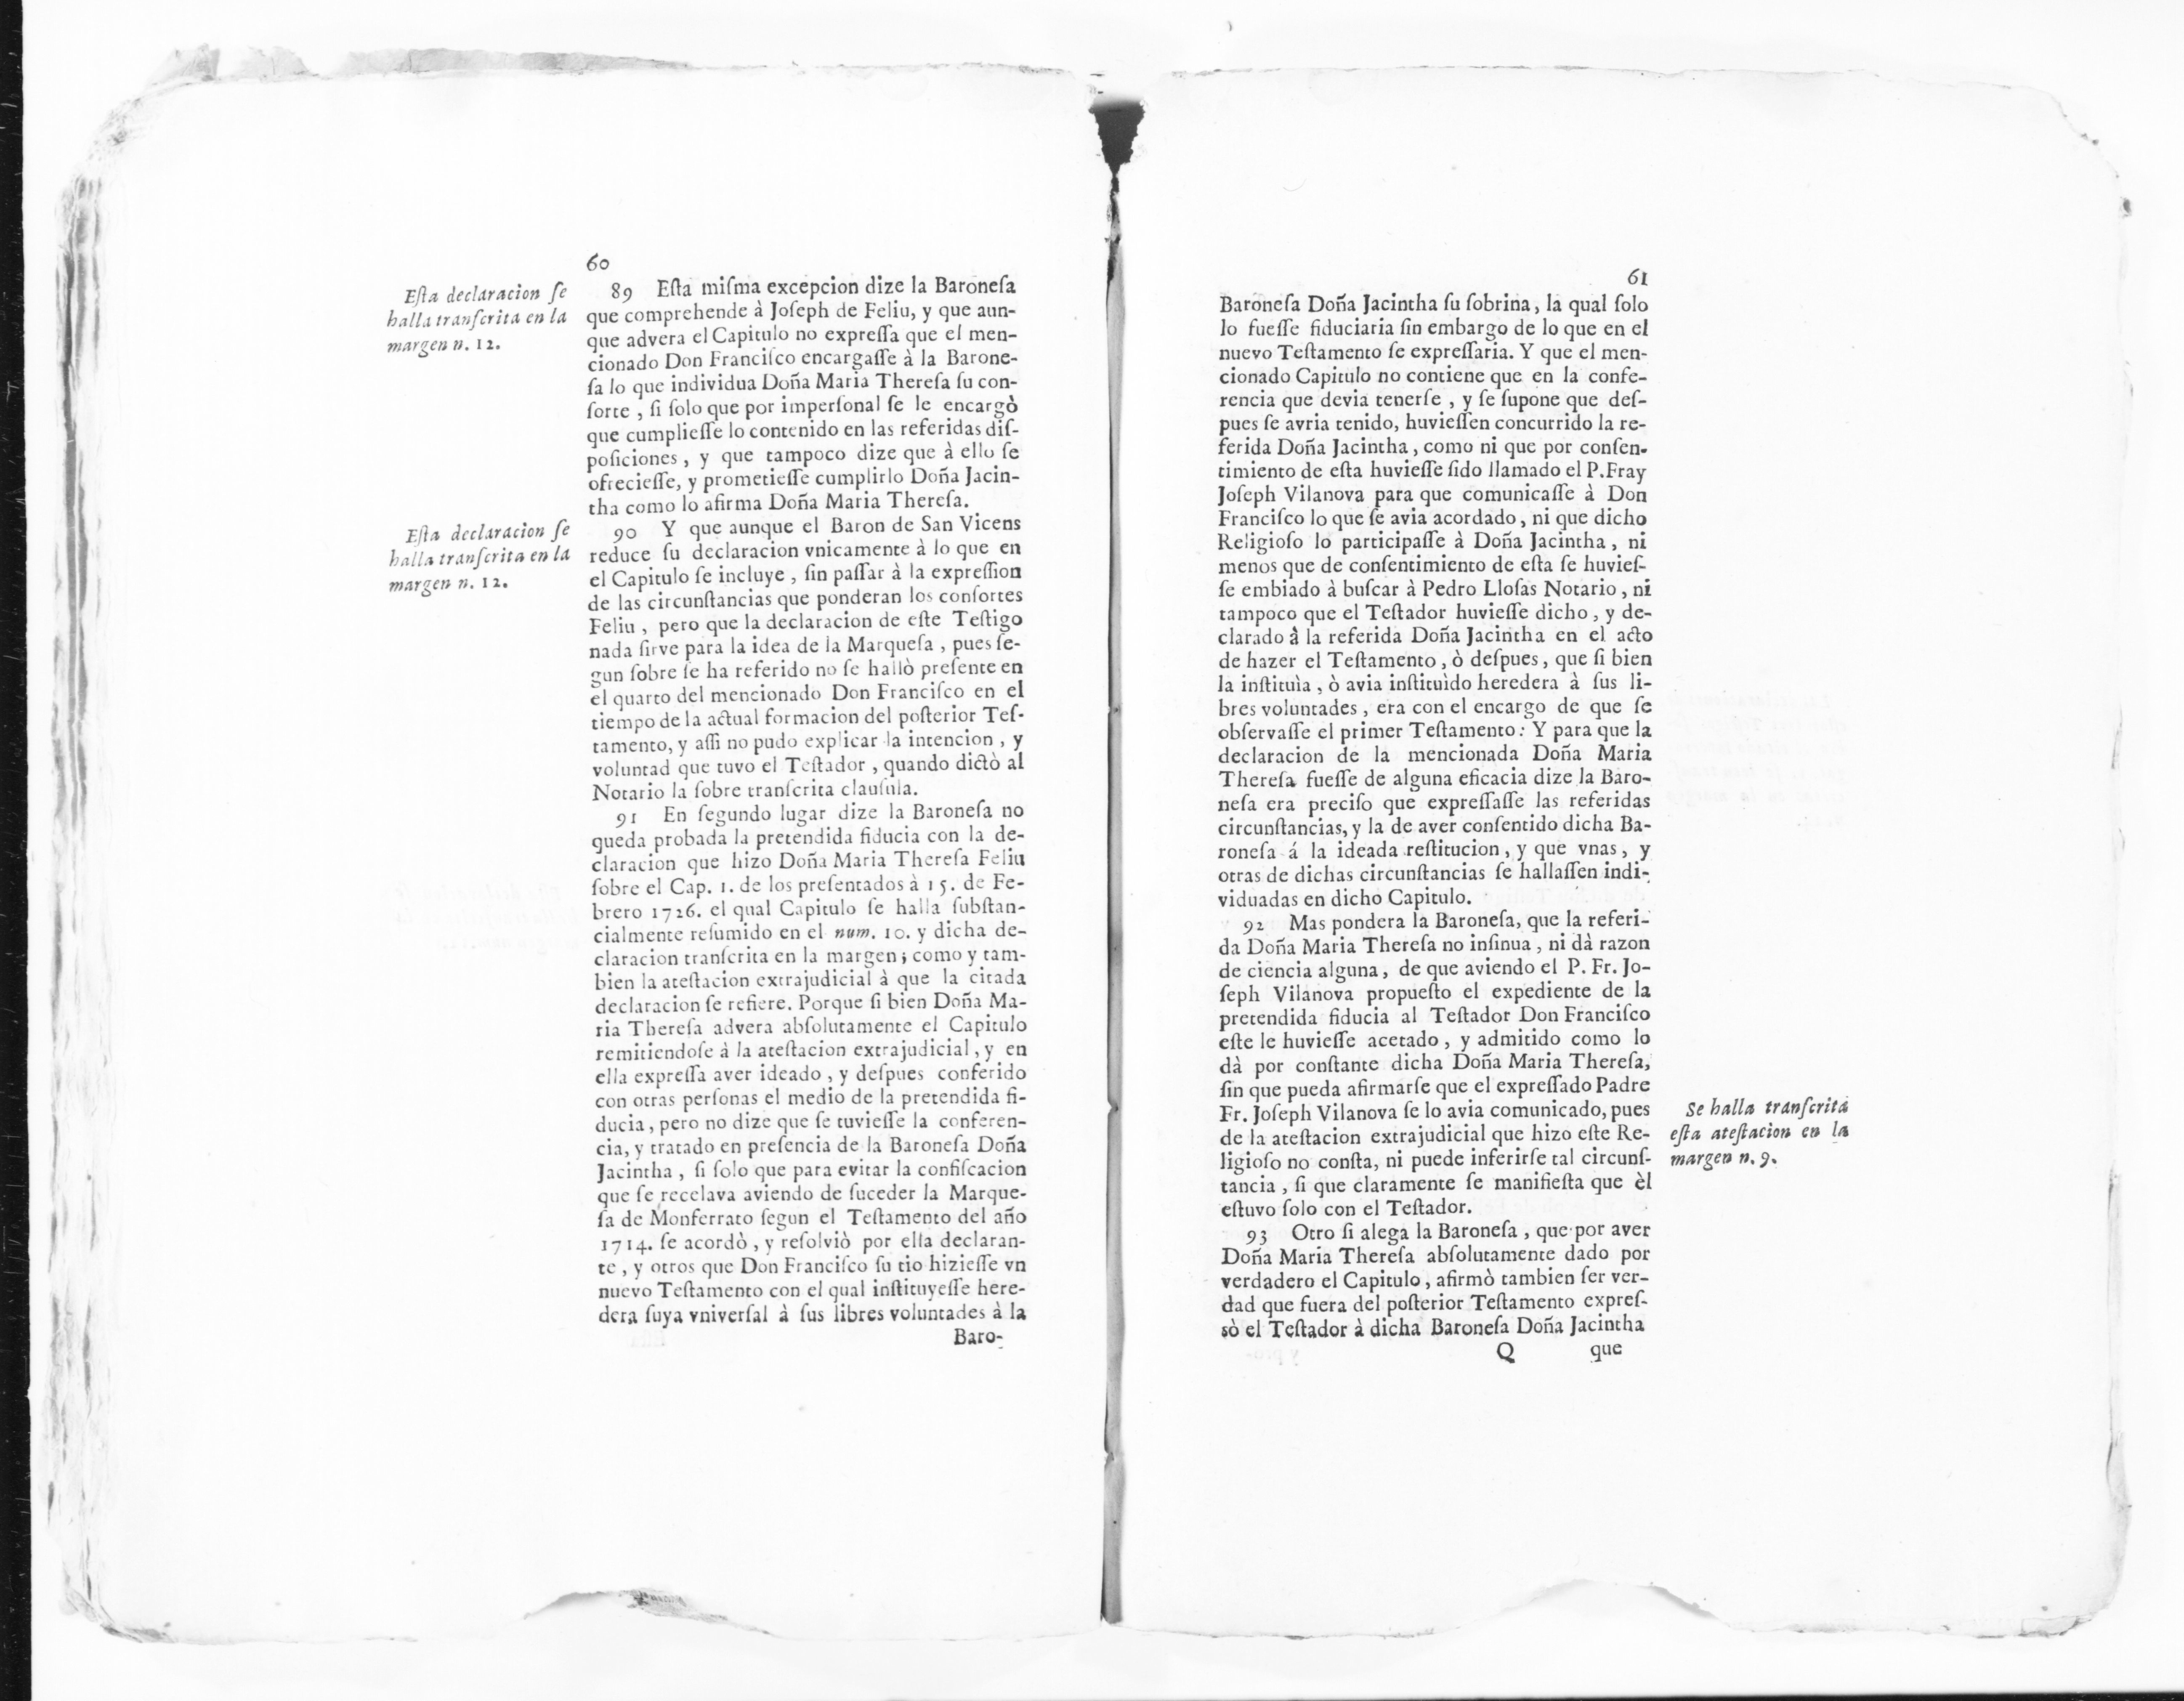 60
Esta declaracion se
halla transcrita en la
margen n. 12.
89 Esta misma excepcion dize la Baronesa
que comprehende à Joseph de Feliu, y que aun-
que advera el Capitulo no expressa que el men-
cionado Don Francisco encargasse à la Barone-
sa lo que individua Doña Maria Theresa su con-
sorte, si solo que por impersonal se le encargò
que cumpliesse lo contenido en las referidas dis-
posiciones, y que tampoco dize que à ello se
ofreciesse, y prometiesse cumplirlo Doña Jacin-
tha como lo afirma Doña Maria Theresa.
Esta declaracion se
halla transcrita en la
margen n. 12.
90 Y que aunque el Baron de San Vicens
reduce su declaracion vnicamente à lo que en
el Capitulo se incluye, sin passar à la expression
de las circunstancias que ponderan los consortes
Feliu, pero que la declaracion de este Testigo
nada sirve para la idea de la Marquesa, pues se-
gun sobre se ha referido no se hallò presente en
el quarto del mencionado Don Francisco en el
tiempo de la actual formacion del posterior Tes-
tamento, y assi no pudo explicar la intencion, y
voluntad que tuvo el Testador, quando dictò al
Notario la sobre transcrita clausula.
91 En segundo lugar dize la Baronesa no
queda probada la pretendida fiducia con la de-
claracion que hizo Doña Maria Theresa Feliu
sobre el Cap. 1. de los presentados à 15. de Fe-
brero 1726. el qual Capitulo se halla substan-
cialmente resumido en el num. 10. y dicha de-
claracion transcrita en la margen; como y tam-
bien la atestacion extrajudicial à que la citada
declaracion se refiere. Porque si bien Doña Ma-
ria Theresa advera absolutamente el Capitulo
remitiendose à la atestacion extrajudicial, y en
ella expressa aver ideado, y despues conferido
con otras personas el medio de la pretendida fi-
ducia, pero no dize que se tuviesse la conferen-
cia, y tratado en presencia de la Baronesa Doña
Jacintha, si solo que para evitar la confiscacion
que se recelava aviendo de suceder la Marque-
sa de Monferrato segun el Testamento del año
1714. se acordò, y resolviò por ella declaran-
te, y otros que Don Francisco su tio hiziesse vn
nuevo Testamento con el qual instituyesse here-
dera suya vniversal à sus libres voluntades à la
Baro-
61
Baronesa Doña Jacintha su sobrina, la qual solo
lo fuesse fiduciaria sin embargo de lo que en el
nuevo Testamento se expressaria. Y que el men-
cionado Capitulo no contiene que en la confe-
rencia que devia tenerse, y se supone que des-
pues se avria tenido, huviessen concurrido la re-
ferida Doña Jacintha, como ni que por consen-
timiento de esta huviesse sido llamado el P. Fray
Joseph Vilanova para que comunicasse à Don
Francisco lo que se avia acordado, ni que dicho
Religioso lo participasse à Doña Jacintha, ni
menos que de consentimiento de esta se huvies-
se embiado à buscar à Pedro Llosas Notario, ni
tampoco que el Testador huviesse dicho, y de-
clarado à la referida Doña Jacintha en el acto
de hazer el Testamento, ò despues, que si bien
la instituìa, ò avia instituìdo heredera à sus li-
bres voluntades, era con el encargo de que se
observasse el primer Testamento: Y para que la
declaracion de la mencionada Doña Maria
Theresa fuesse de alguna eficacia dize la Baro-
nesa era preciso que expressasse las referidas
circunstancias, y la de aver consentido dicha Ba-
ronesa á la ideada restitucion, y que vnas, y
otras de dichas circunstancias se hallassen indi-
viduadas en dicho Capitulo.
92 Mas pondera la Baronesa, que la referi-
da Doña Maria Theresa no insinua, ni dà razon
de ciencia alguna, de que aviendo el P. Fr. Jo-
seph Vilanova propuesto el expediente de la
pretendida fiducia al Testador Don Francisco
este le huviesse acetado, y admitido como lo
dà por constante dicha Doña Maria Theresa,
sin que pueda afirmarse que el expressado Padre
Fr. Joseph Vilanova se lo avia comunicado, pues
de la atestacion extrajudicial que hizo este Re-
ligioso no consta, ni puede inferirse tal circuns-
tancia, si que claramente se manifiesta que èl
estuvo solo con el Testador.
Se halla transcrita
esta atestacion en la
margen n. 9.
93 Otro si alega la Baronesa, que por aver
Doña Maria Theresa absolutamente dado por
verdadero el Capitulo, afirmò tambien ser ver-
dad que fuera del posterior Testamento expres-
sò el Testador à dicha Baronesa Doña Jacintha
Q que